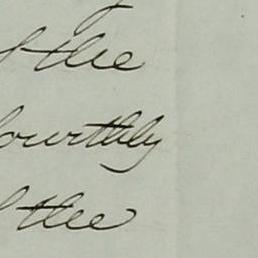 the
fourthly
the